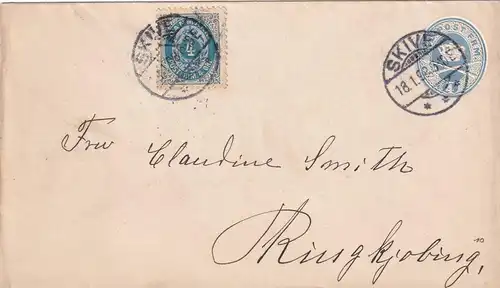 SKIVE
4
SKIVE
18.1.9
POST FRM
Frw Claudine Smith
Ringkjobing,